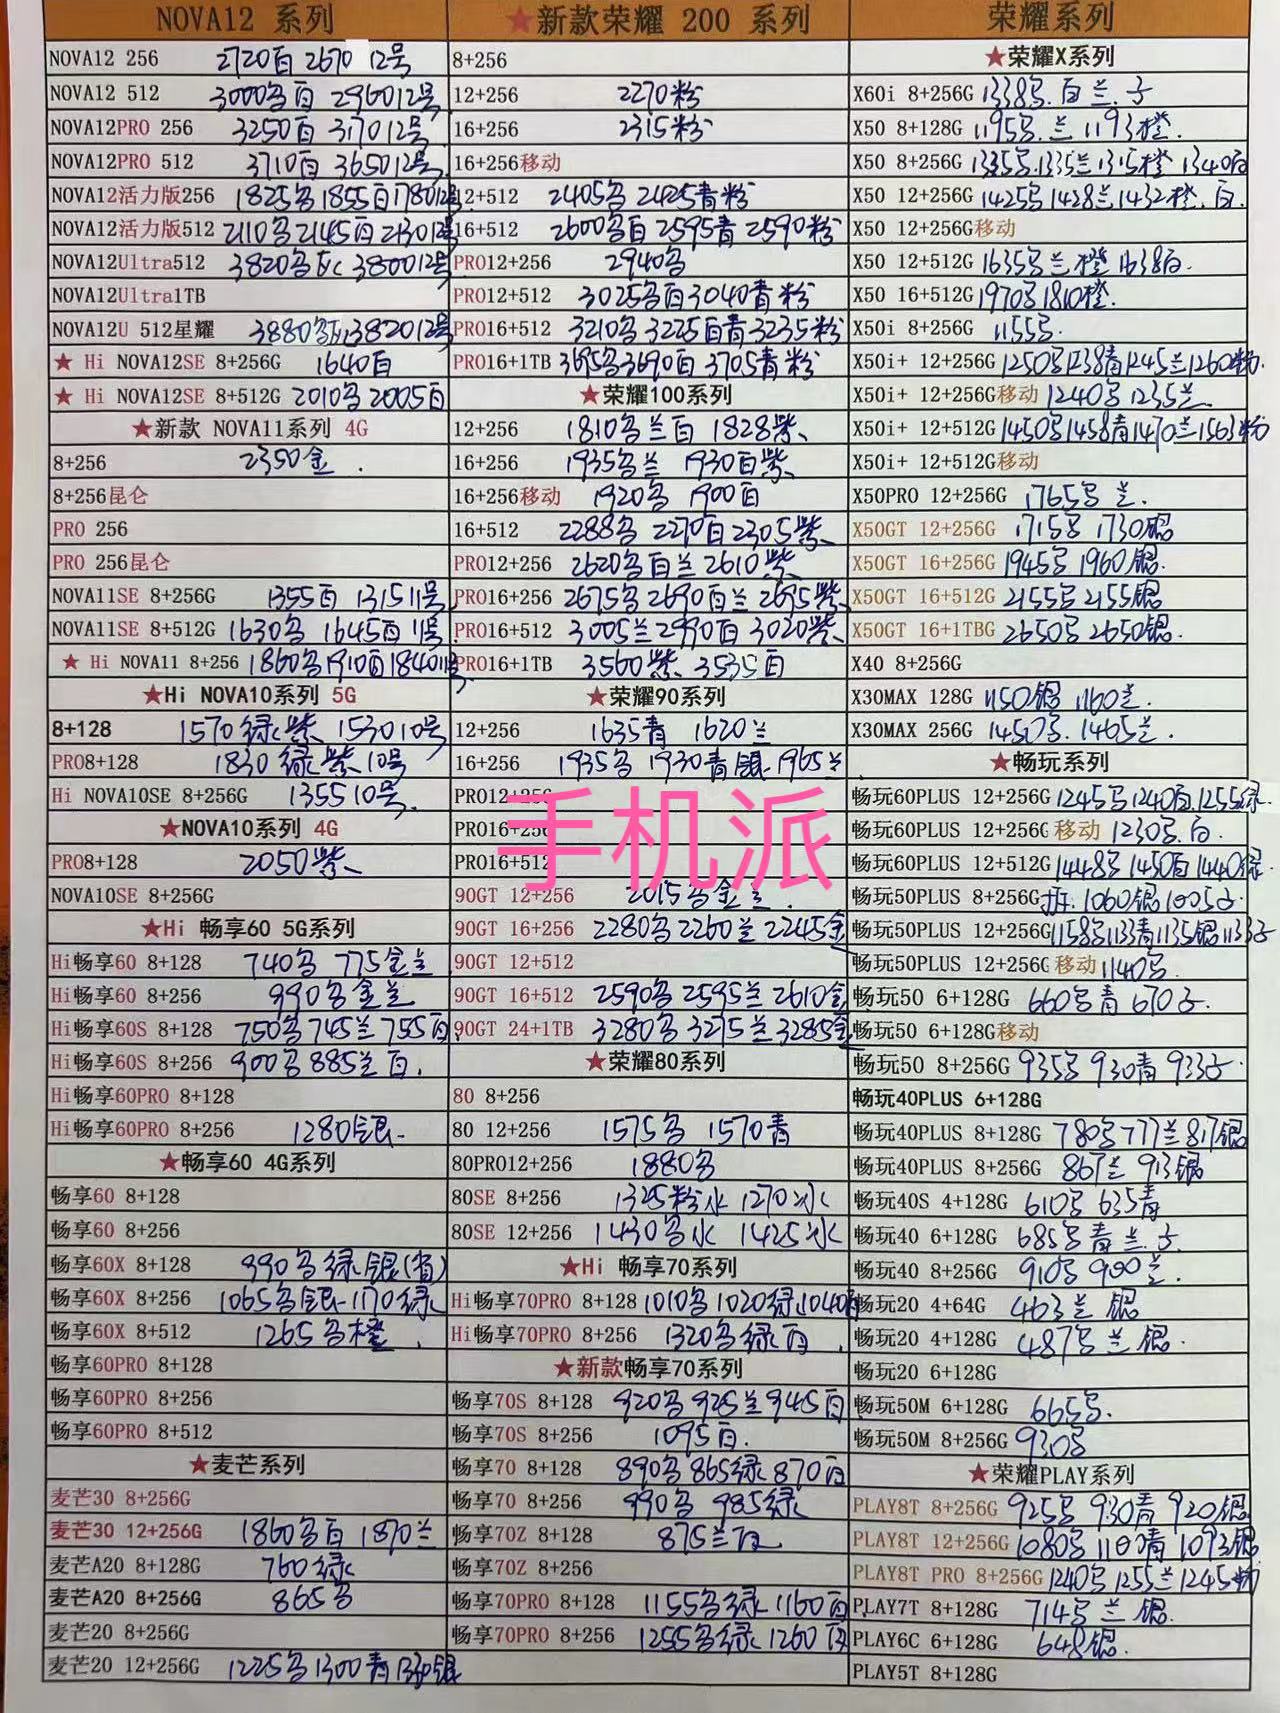 NOVA12 系列
NOVA12 256 2720白 2670 12号
NOVA12 512 3000多白 2960 12号
NOVA12PRO 256 3250白 3170 12号
NOVA12PRO 512 3710白 3650 12号
NOVA12活力版256 1825多 1855白 1780 12号
NOVA12活力版512 2110多 2145白 2130 12号
NOVA12Ultra512 3820多 3800 12号
NOVA12Ultra1TB
NOVA12U 512星耀 3880多 3820 12号
★ Hi NOVA12SE 8+256G 1640白
★ Hi NOVA12SE 8+512G 2010多 2005白
★新款 NOVA11系列 4G
8+256 2350金
8+256昆仑
PRO 256
PRO 256昆仑
NOVA11SE 8+256G 1355白 1315 11号
NOVA11SE 8+512G 1630多 1645白 11号
★ Hi NOVA11 8+256 1860多 1910白 1840 11号
★Hi NOVA10系列 5G
8+128 1570绿紫 1530 10号
PRO8+128 1830绿紫 10号
Hi NOVA10SE 8+256G 1355 10号
★NOVA10系列 4G
PRO8+128 2050紫
NOVA10SE 8+256G
★Hi 畅享60 5G系列
Hi畅享60 8+128 740多 775金兰
Hi畅享60 8+256 990多金兰
Hi畅享60S 8+128 750多 745兰 755白
Hi畅享60S 8+256 900多 885兰白
Hi畅享60PRO 8+128
Hi畅享60PRO 8+256 1280银
★畅享60 4G系列
畅享60 8+128
畅享60 8+256
畅享60X 8+128 990多绿银(省)
畅享60X 8+256 1065多银 1170绿
畅享60X 8+512 1265多橙
畅享60PRO 8+128
畅享60PRO 8+256
畅享60PRO 8+512
★麦芒系列
麦芒30 8+256G
麦芒30 12+256G 1860多白 1870兰
麦芒A20 8+128G 760绿
麦芒A20 8+256G 865多
麦芒20 8+256G
麦芒20 12+256G 1225多 1300青 1330银
★新款荣耀 200 系列
8+256
12+256 2270粉
16+256 2315粉
16+256移动
12+512 2405多 2425青粉
16+512 2600多白 2595青 2590粉
PRO12+256 2940多
PRO12+512 3025多白 3040青粉
PRO16+512 3210多 3225白青 3235粉
PRO16+1TB 3695多 3690白 3705青粉
★荣耀100系列
12+256 1810多兰白 1828紫
16+256 1935多兰 1930白紫
16+256移动 1920多 1900白
16+512 2288多 2270白 2305紫
PRO12+256 2620多白兰 2610紫
PRO16+256 2675多 2690白兰 2695紫
PRO16+512 3005兰 2990白 3020紫
PRO16+1TB 3560紫 3535白
★荣耀90系列
12+256 1635青 1620兰
16+256 1935多 1930青银 1965兰
PRO12+256
PRO16+256
PRO16+512
90GT 12+256 2015多金兰
90GT 16+256 2280多 2260兰 2245金
90GT 12+512
90GT 16+512 2590多 2595兰 2610金
90GT 24+1TB 3280多 3275兰 3285金
★荣耀80系列
80 8+256
80 12+256 1575多 1570青
80PRO12+256 1880多
80SE 8+256 1325粉水 1270冰
80SE 12+256 1430多冰 1425冰
★Hi 畅享70系列
Hi畅享70PRO 8+128 1010多 1020绿 1040白
Hi畅享70PRO 8+256 1320多绿白
★新款畅享70系列
畅享70S 8+128 920多 925兰 945白
畅享70S 8+256 1095白
畅享70 8+128 890多 865绿 870白
畅享70 8+256 990多 985绿
畅享70Z 8+128 875兰白
畅享70Z 8+256
畅享70PRO 8+128 1155多绿 1160白
畅享70PRO 8+256 1255多绿 1260白
荣耀系列
★荣耀X系列
X60i 8+256G 1338多白兰子
X50 8+128G 1195多兰 1193橙
X50 8+256G 1335多 1335兰 1315橙 1340白
X50 12+256G 1425多 1428兰 1432橙白
X50 12+256G移动
X50 12+512G 1635多兰橙 1638白
X50 16+512G 1970多 1810橙
X50i 8+256G 1155多
X50i+ 12+256G 1250多 1238青 1245兰 1260粉
X50i+ 12+256G移动 1240多 1235兰
X50i+ 12+512G 1450多 1458青 1470兰 1563粉
X50i+ 12+512G移动
X50PRO 12+256G 1765多兰
X50GT 12+256G 1715多 1730银
X50GT 16+256G 1945多 1960银
X50GT 16+512G 2155多 2155银
X50GT 16+1TBG 2650多 2650银
X40 8+256G
X30MAX 128G 1150银 1160兰
X30MAX 256G 1450多 1465兰
★畅玩系列
畅玩60PLUS 12+256G 1245多 1240白 1255绿
畅玩60PLUS 12+256G移动 1230多白
畅玩60PLUS 12+512G 1448多 1450白 1440绿
畅玩50PLUS 8+256G 拆 1060银 1005子
畅玩50PLUS 12+256G 1158多 1133青 1135银 1133子
畅玩50PLUS 12+256G移动 1140多
畅玩50 6+128G 660多青 670子
畅玩50 6+128G移动
畅玩50 8+256G 935多 930青 933子
畅玩40PLUS 6+128G
畅玩40PLUS 8+128G 780多 777兰 817银
畅玩40PLUS 8+256G 867兰 913银
畅玩40S 4+128G 610多 635青
畅玩40 6+128G 685多青兰子
畅玩40 8+256G 910多 900兰
畅玩20 4+64G 463兰银
畅玩20 4+128G 487多兰银
畅玩20 6+128G
畅玩50M 6+128G 665多
畅玩50M 8+256G 930多
★荣耀PLAY系列
PLAY8T 8+256G 925多 930青 920银
PLAY8T 12+256G 1080多 青 1093银
PLAY8T PRO 8+256G 1240多 1255兰 1245粉
PLAY7T 8+128G 714多兰银
PLAY6C 6+128G 648银
PLAY5T 8+128G
手机派